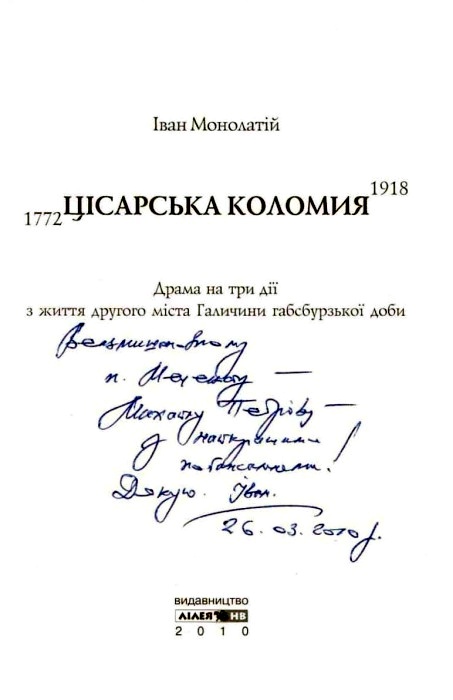 Іван Монолатій
1772 ЦІСАРСЬКА КОЛОМИЯ 1918
Драма на три дії
з життя другого міста Галичини габсбурзької доби
Вельмишановному
п.
Михайлу Петріву –
з найкращими
побажаннями!
Дякую. Іван.
26.03.2010 р.
видавництво
ЛІЛЕЯ НВ
2010